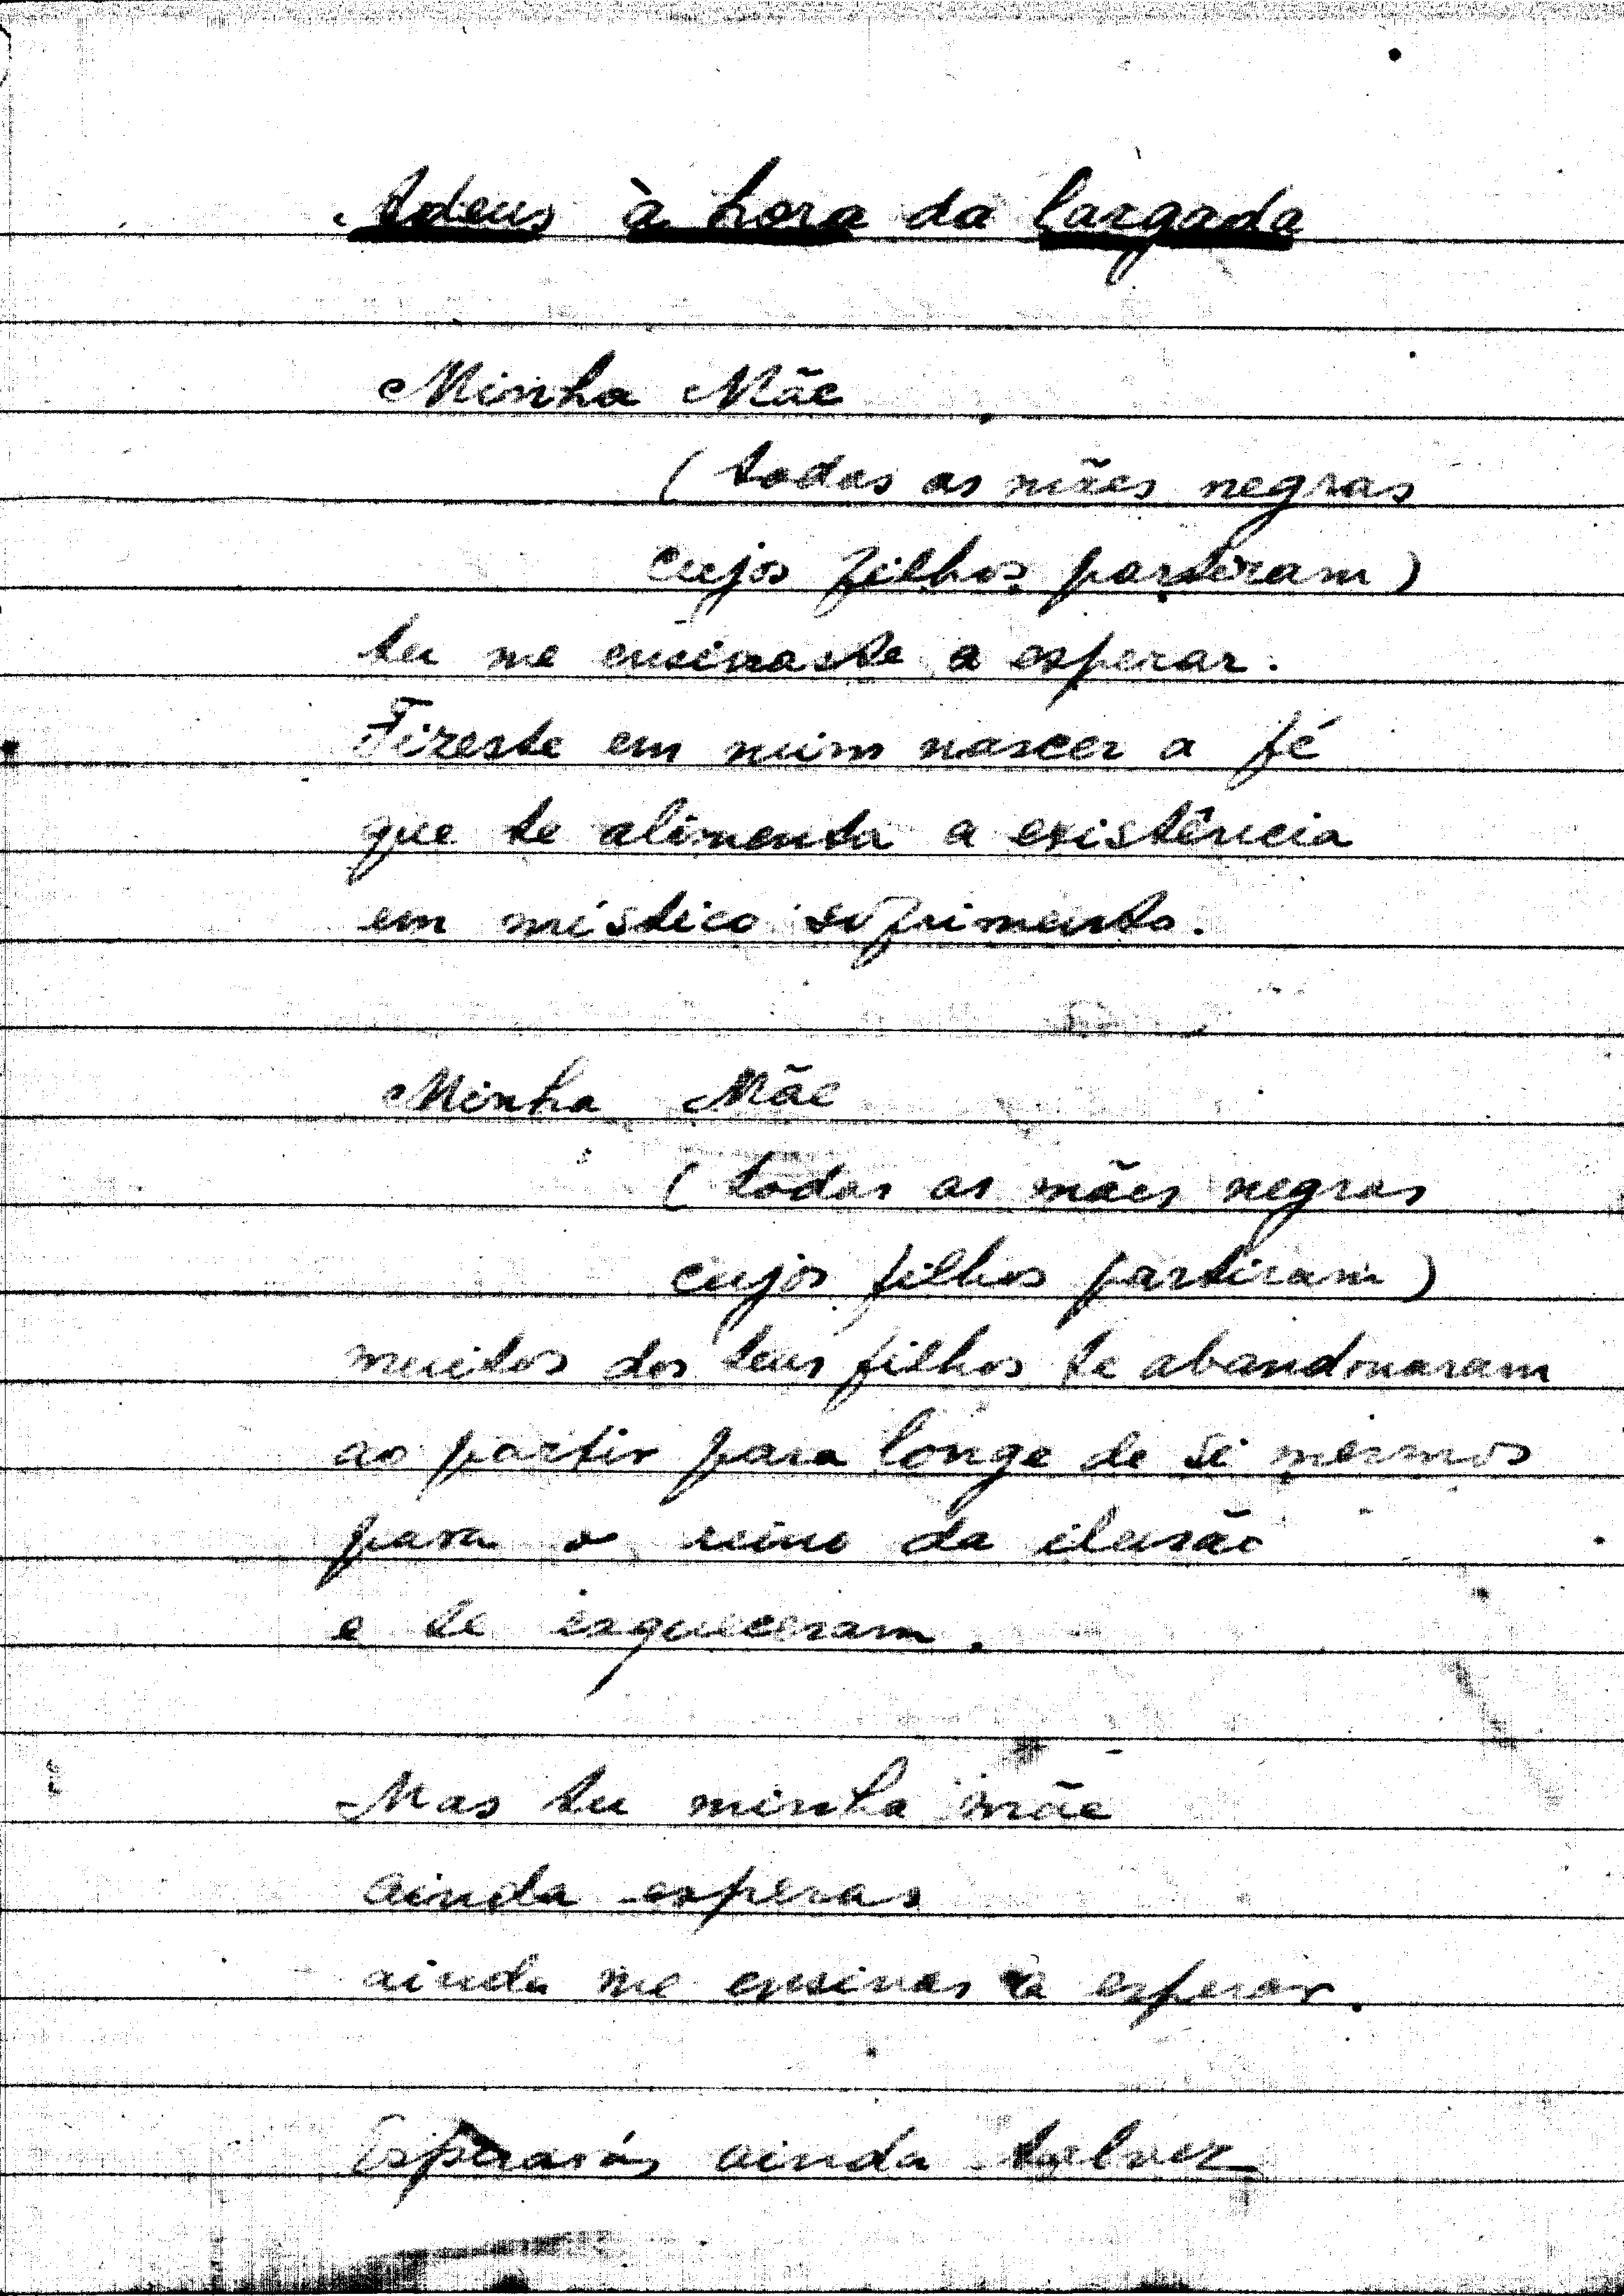 Adeus à hora da largada
Minha Mãe
(todas as mães negras
cujos filhos partiram)
tu me ensinaste a esperar.
Fizeste em mim nascer a fé
que te alimenta a existência
em místico sofrimento.
Minha Mãe
(todas as mães negras
cujos filhos partiram)
muitos dos teus filhos te abandonaram
ao partir para longe de si mesmos
para o reino da ilusão
e te esqueceram.
Mas tu minha mãe
ainda esperas
ainda me ensinas a esperar.
Esperarás ainda talvez